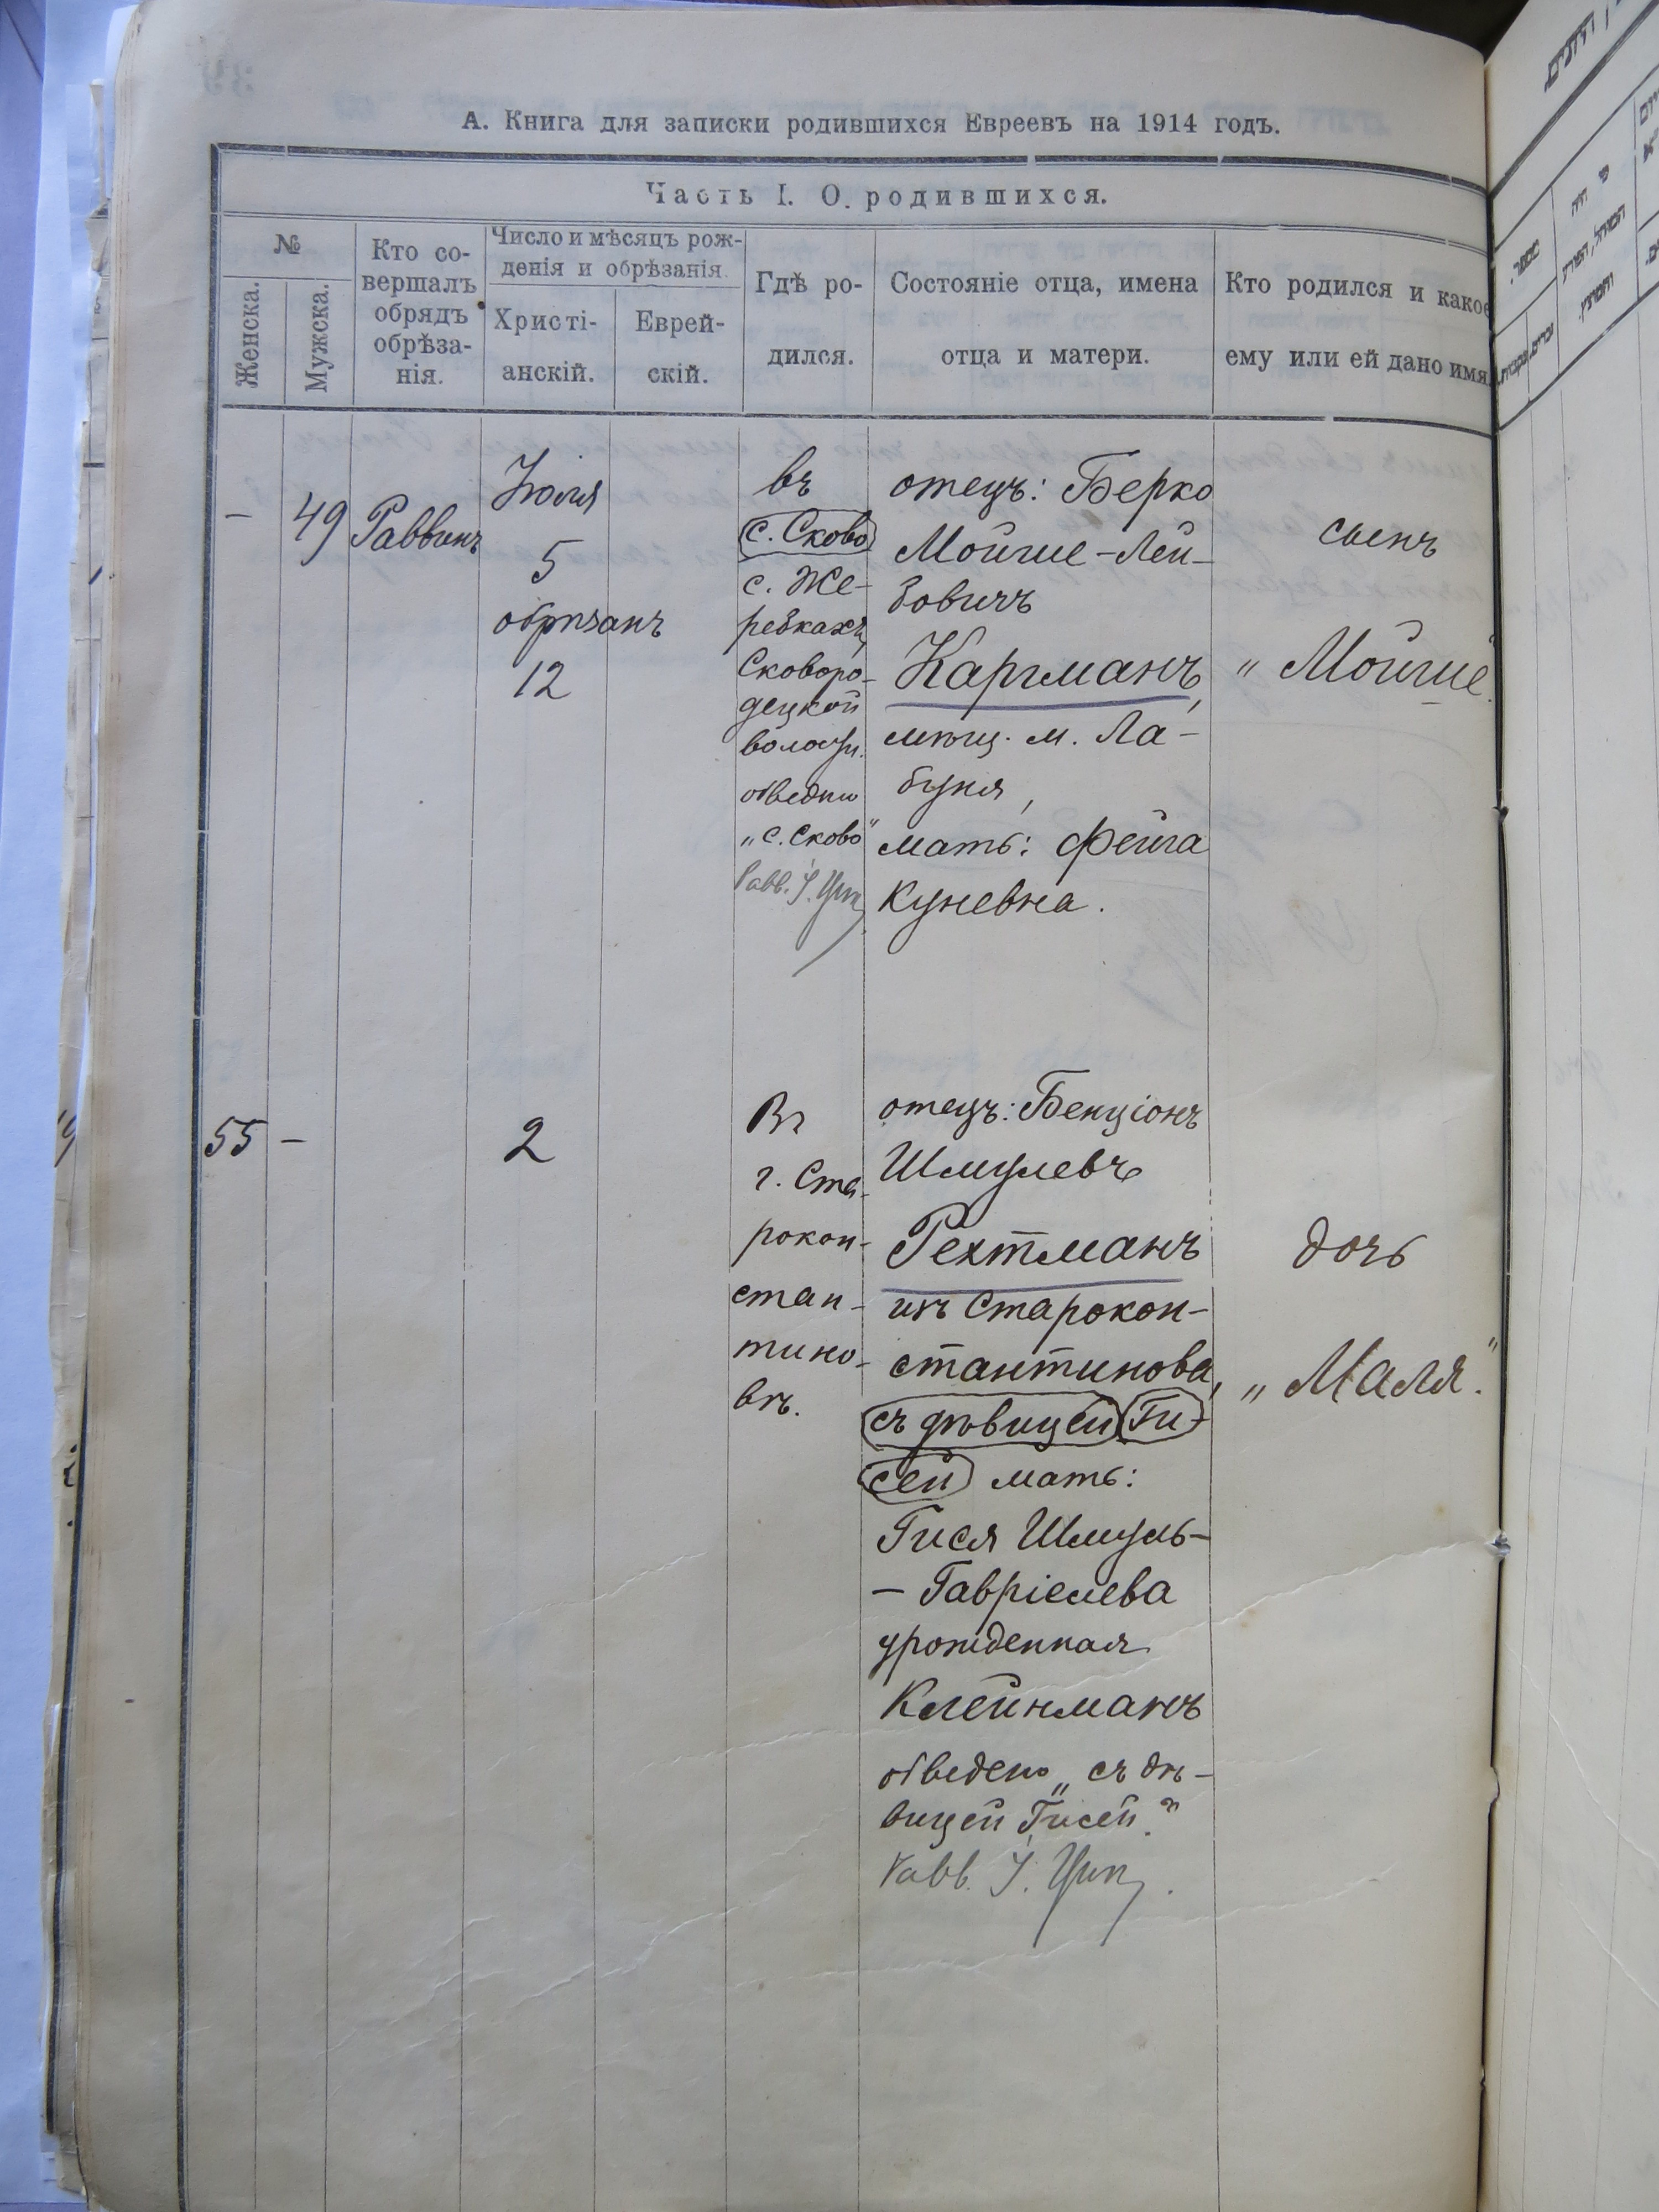 А. Книга для записки родившихся Евреевъ на 1914 годъ.
Часть I. О родившихся.
№
Женска.
Мужска.
Кто со-
вершалъ
обрядъ
обрѣза-
нія.
Число и мѣсяцъ рож-
денія и обрѣзанія.
Христі-
анскій.
Еврей-
скій.
Гдѣ ро-
дился.
Состояніе отца, имена
отца и матери.
Кто родился и какое
ему или ей дано имя
–
49
Раввинъ
Іюля
5
обрѣзанъ
12
въ
с. Сково
с. Же-
ребкахъ,
Сковоро-
децкой
волости.
обведено
„с. Сково"
Равв. І.
отецъ: Берко
Мойше-Лей-
бовичъ
Каргманъ,
мѣщ. м. Ла-
буня,
мать: Фейга
Куневна.
сынъ
„Мойше"
55
–
2
Въ
г. Ста-
рокон-
стан-
тино-
вѣ.
отецъ: Бенціонъ
Шмулевъ
Рехтманъ
изъ Старокон-
стантинова,
съ дѣвицей Ги-
сей мать:
Гися Шмуль-
-Гавріелева
урожденная
Клейнманъ
обведено „съ дѣ-
вицей Гисей."
Равв. І.
дочь
„Маля".